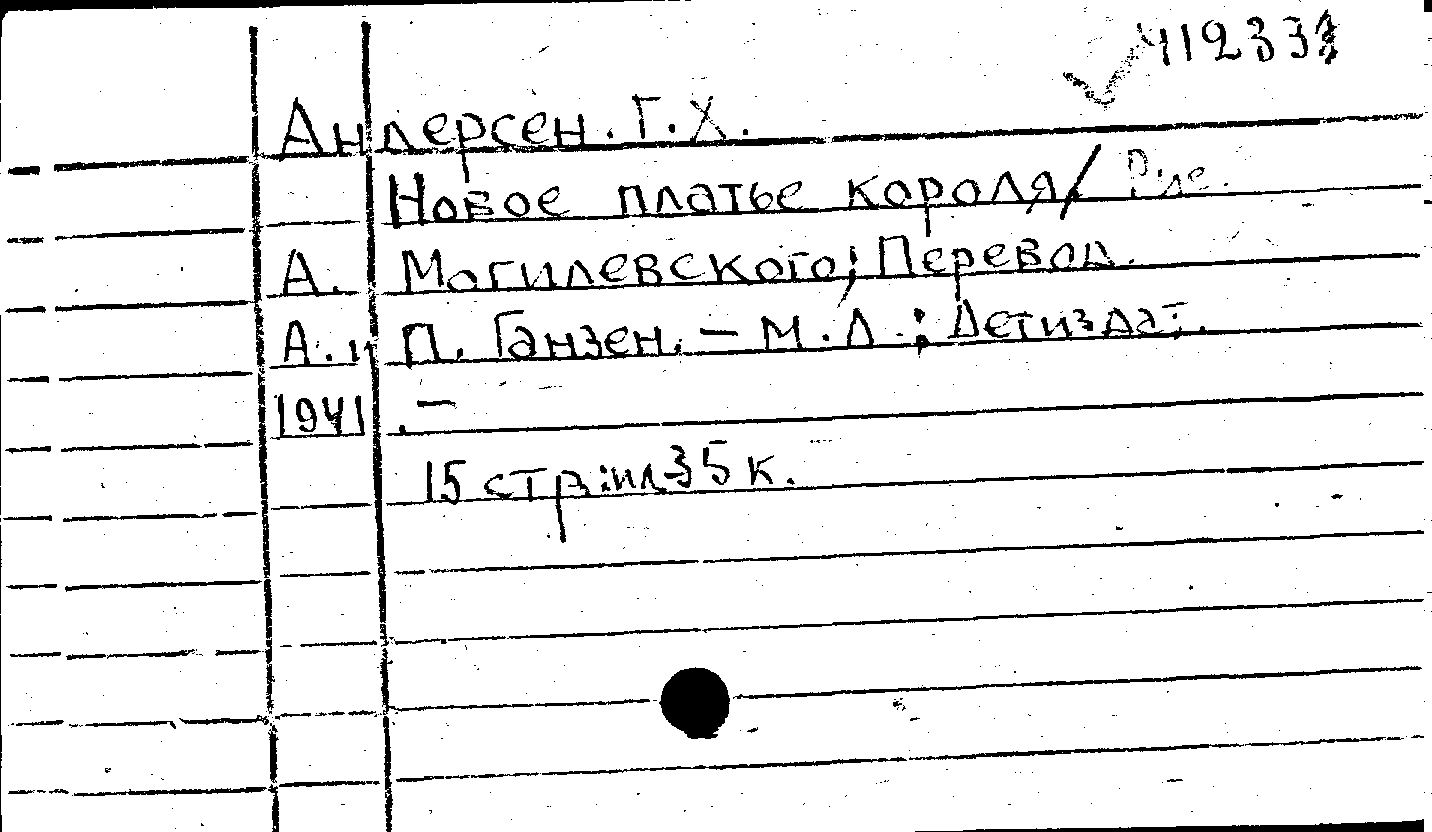 412331
Андерсен. Г. Х.
Новое платье короля / Рис.
А. Могилевского; Перевод.
А. и П. Ганзен. – М. Л.: Детиздат.
1941. –
15 стр: ил 35 к.